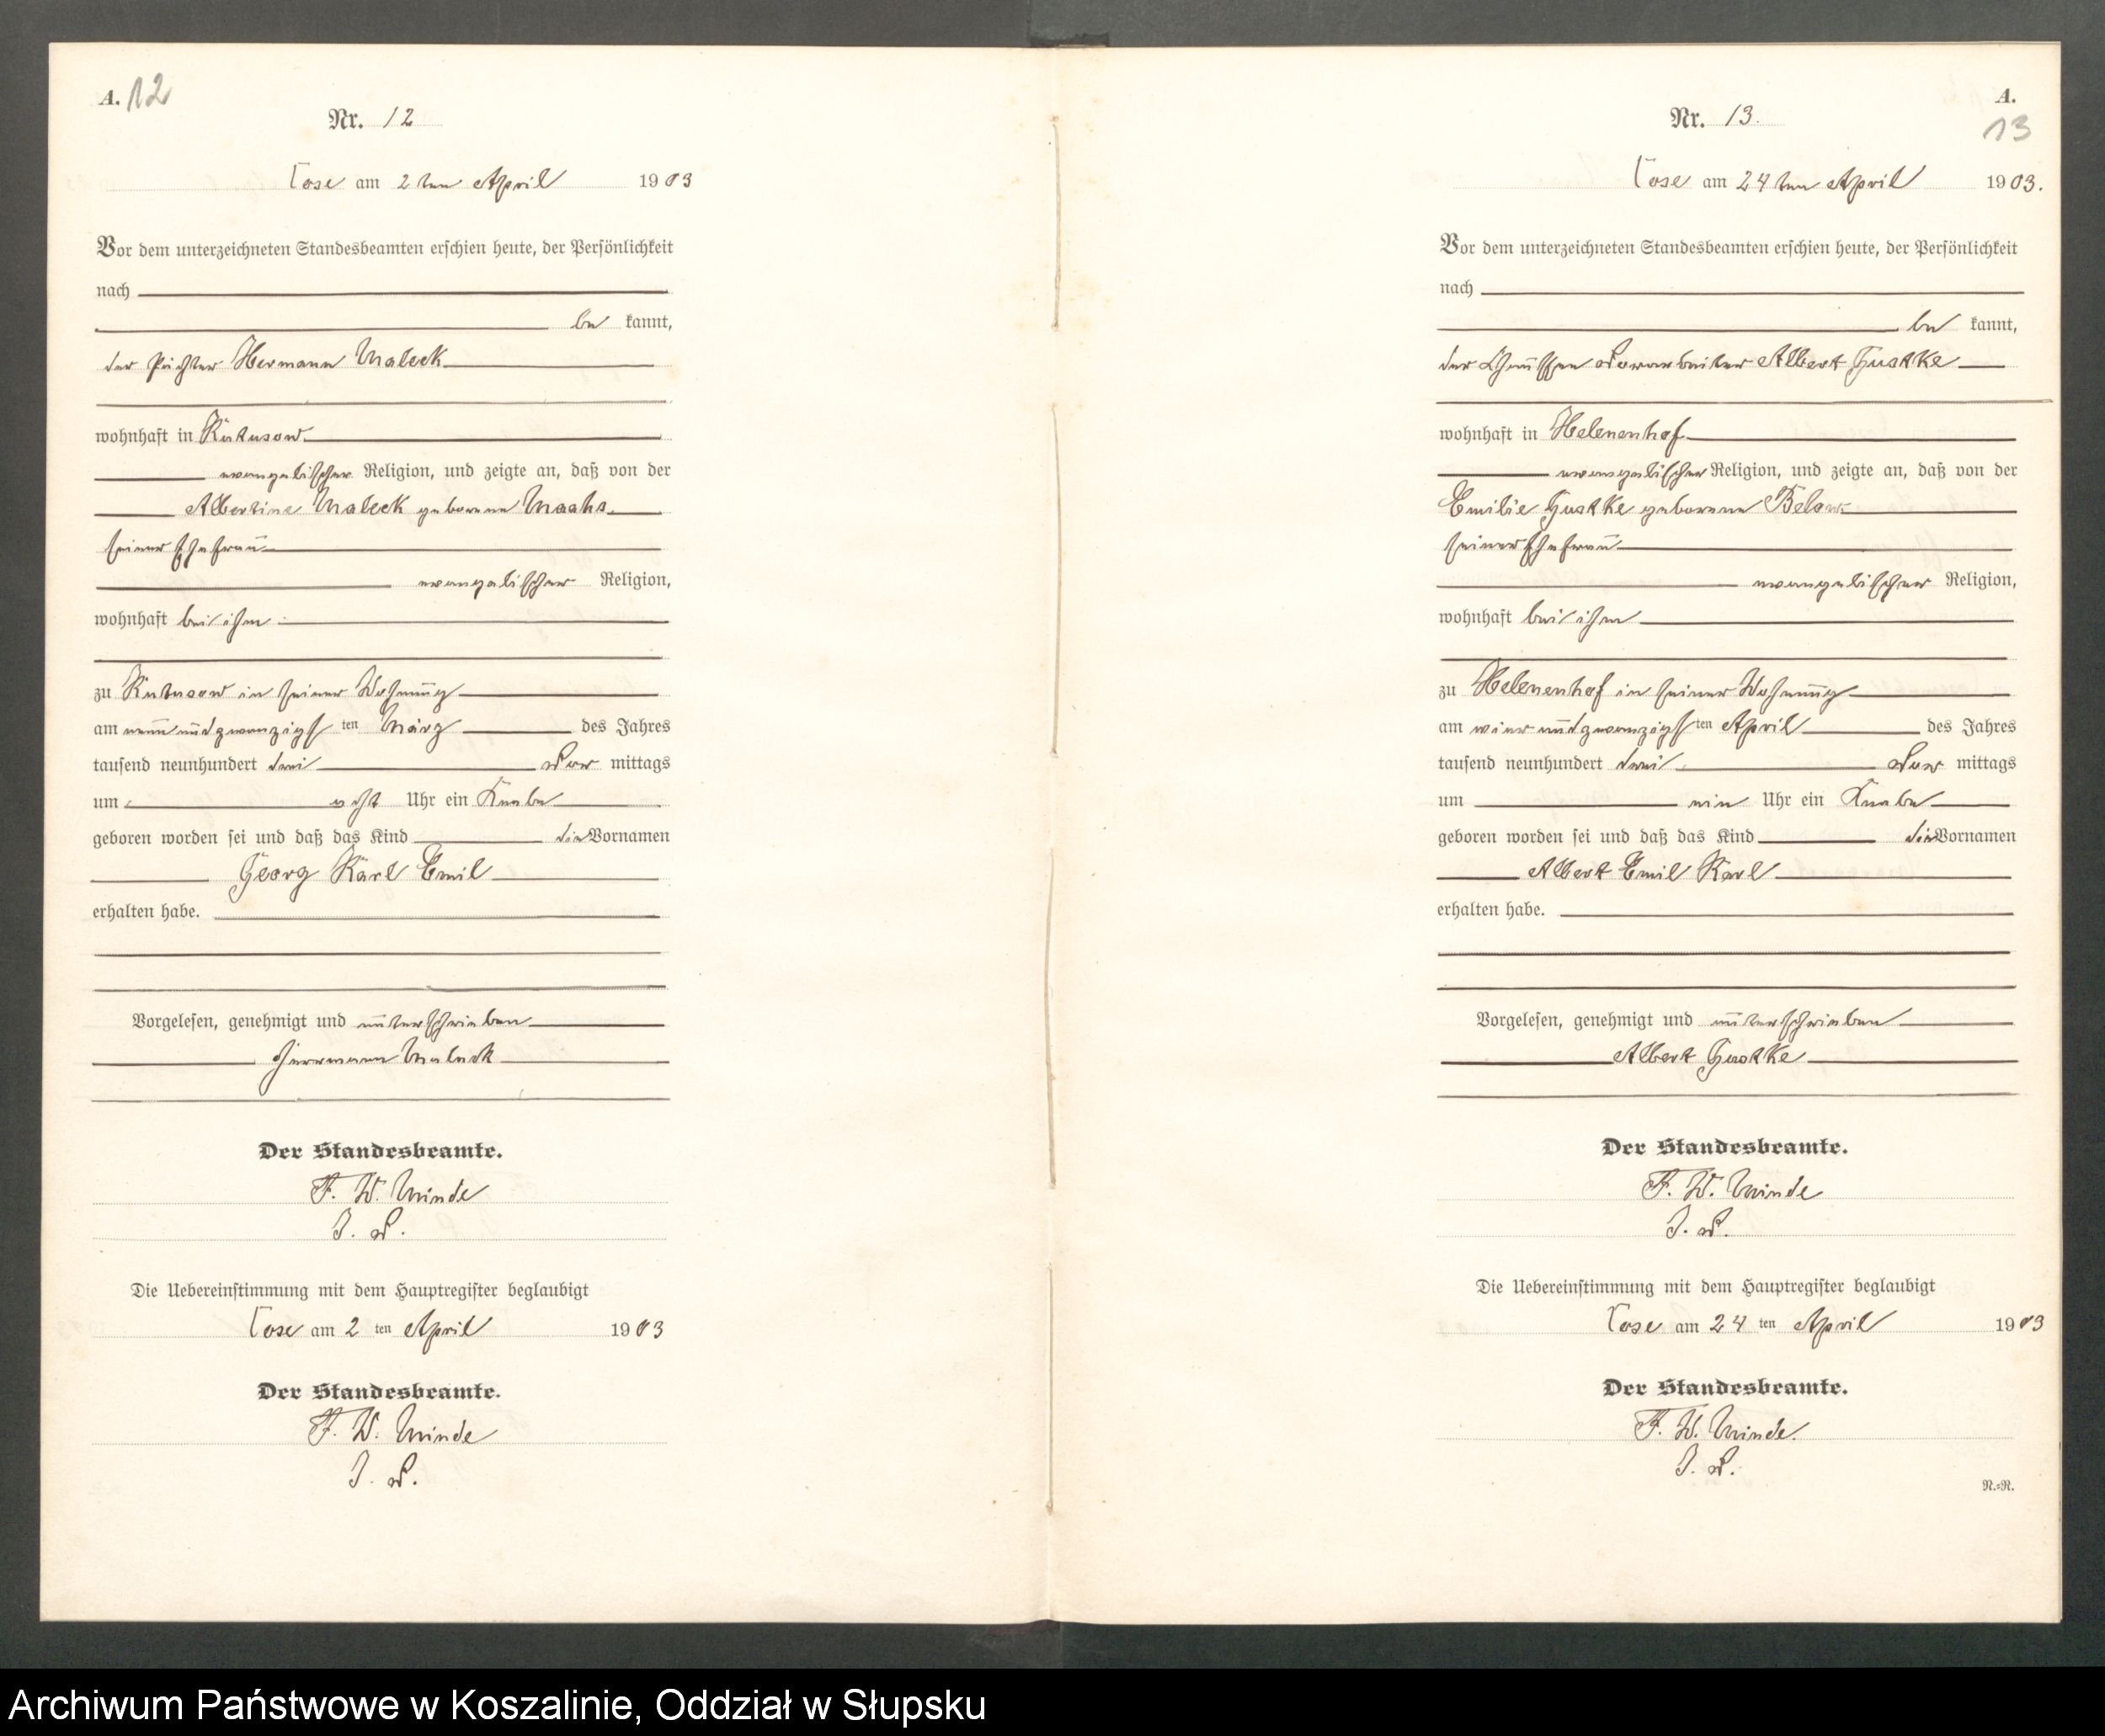 A. 12
Nr. 12
Cose am 2ten April 1903
Vor dem unterzeichneten Standesbeamten erschien heute, der Persönlichkeit
nach
be kannt,
der Pächter Hermann Maleck
wohnhaft in Kutusow
evangelischer Religion, und zeigte an, daß von der
Albertine Maleck geborene Maahs
seiner Ehefrau
evangelischer Religion,
wohnhaft bei ihm
zu Kutusow in seiner Wohnung
am neun und zwanzigsten März des Jahres
tausend neunhundert drei Vor mittags
um acht Uhr ein Knabe
geboren worden sei und daß das Kind die Vornamen
Georg Karl Emil
erhalten habe.
Vorgelesen, genehmigt und unterschrieben
Herrmann Maleck
Der Standesbeamte.
F. W. Minde
J. V.
Die Uebereinstimmung mit dem Hauptregister beglaubigt
Cose am 2 ten April 1903
Der Standesbeamte.
F. W. Minde
J. V.
A.
13
Nr. 13.
Cose am 24ten April 1903.
Vor dem unterzeichneten Standesbeamten erschien heute, der Persönlichkeit
nach
be kannt,
der Chausseevorarbeiter Albert Gustke
wohnhaft in Helenenhof
evangelischer Religion, und zeigte an, daß von der
Emilie Gustke geborene Below
seiner Ehefrau
evangelischer Religion,
wohnhaft bei ihm
zu Helenenhof in seiner Wohnung
am vier und zwanzigsten April des Jahres
tausend neunhundert drei Vor mittags
um ein Uhr ein Knabe
geboren worden sei und daß das Kind die Vornamen
Albert Emil Karl
erhalten habe.
Vorgelesen, genehmigt und unterschrieben
Albert Gustke
Der Standesbeamte.
F. W. Minde
J. V.
Die Uebereinstimmung mit dem Hauptregister beglaubigt
Cose am 24 ten April 1903
Der Standesbeamte.
F. W. Minde.
J. V.
N.=R.
Archiwum Państwowe w Koszalinie, Oddział w Słupsku